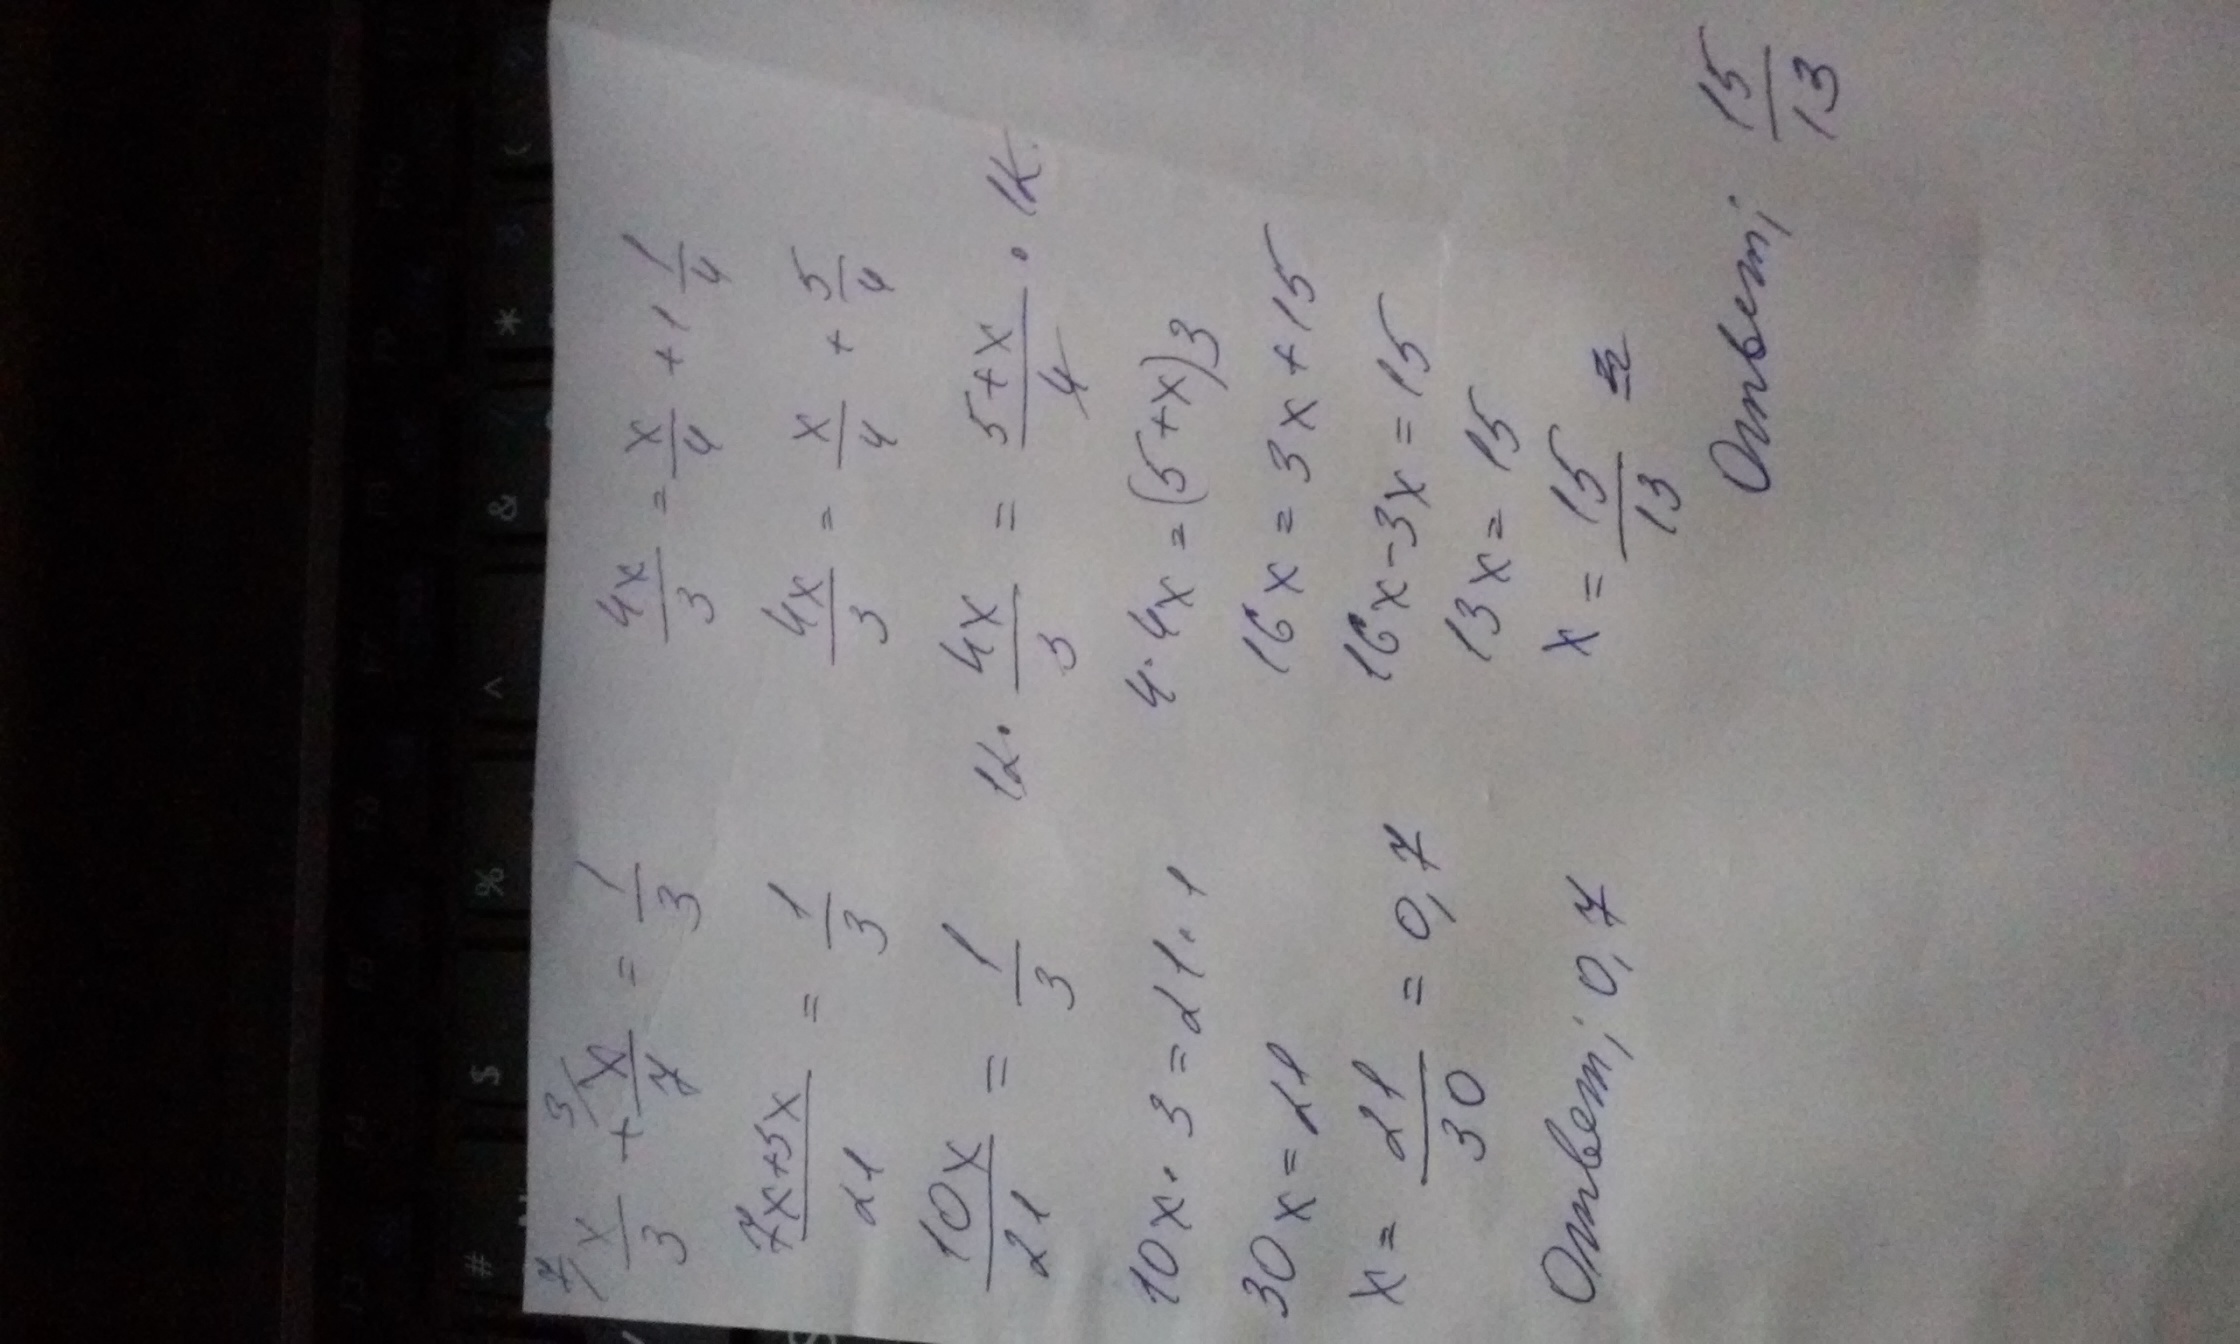 7/ x/3 + 3/ x/7 = 1/3
7x+3x/21 = 1/3
10x/21 = 1/3
10x · 3 = 21 · 1
30x = 21
x = 21/30 = 0,7
Ответ; 0,7
4x/3 = x/4 + 1 1/4
4x/3 = x/4 + 5/4
12 · 4x/3 = 5+x/4 · 12
4 · 4x = (5+x)3
16x = 3x + 15
16x - 3x = 15
13x = 15
x = 15/13
Ответ; 15/13
# $ % ^ & * (
F3 F4 F5 F6 F7 F8 F9 F10